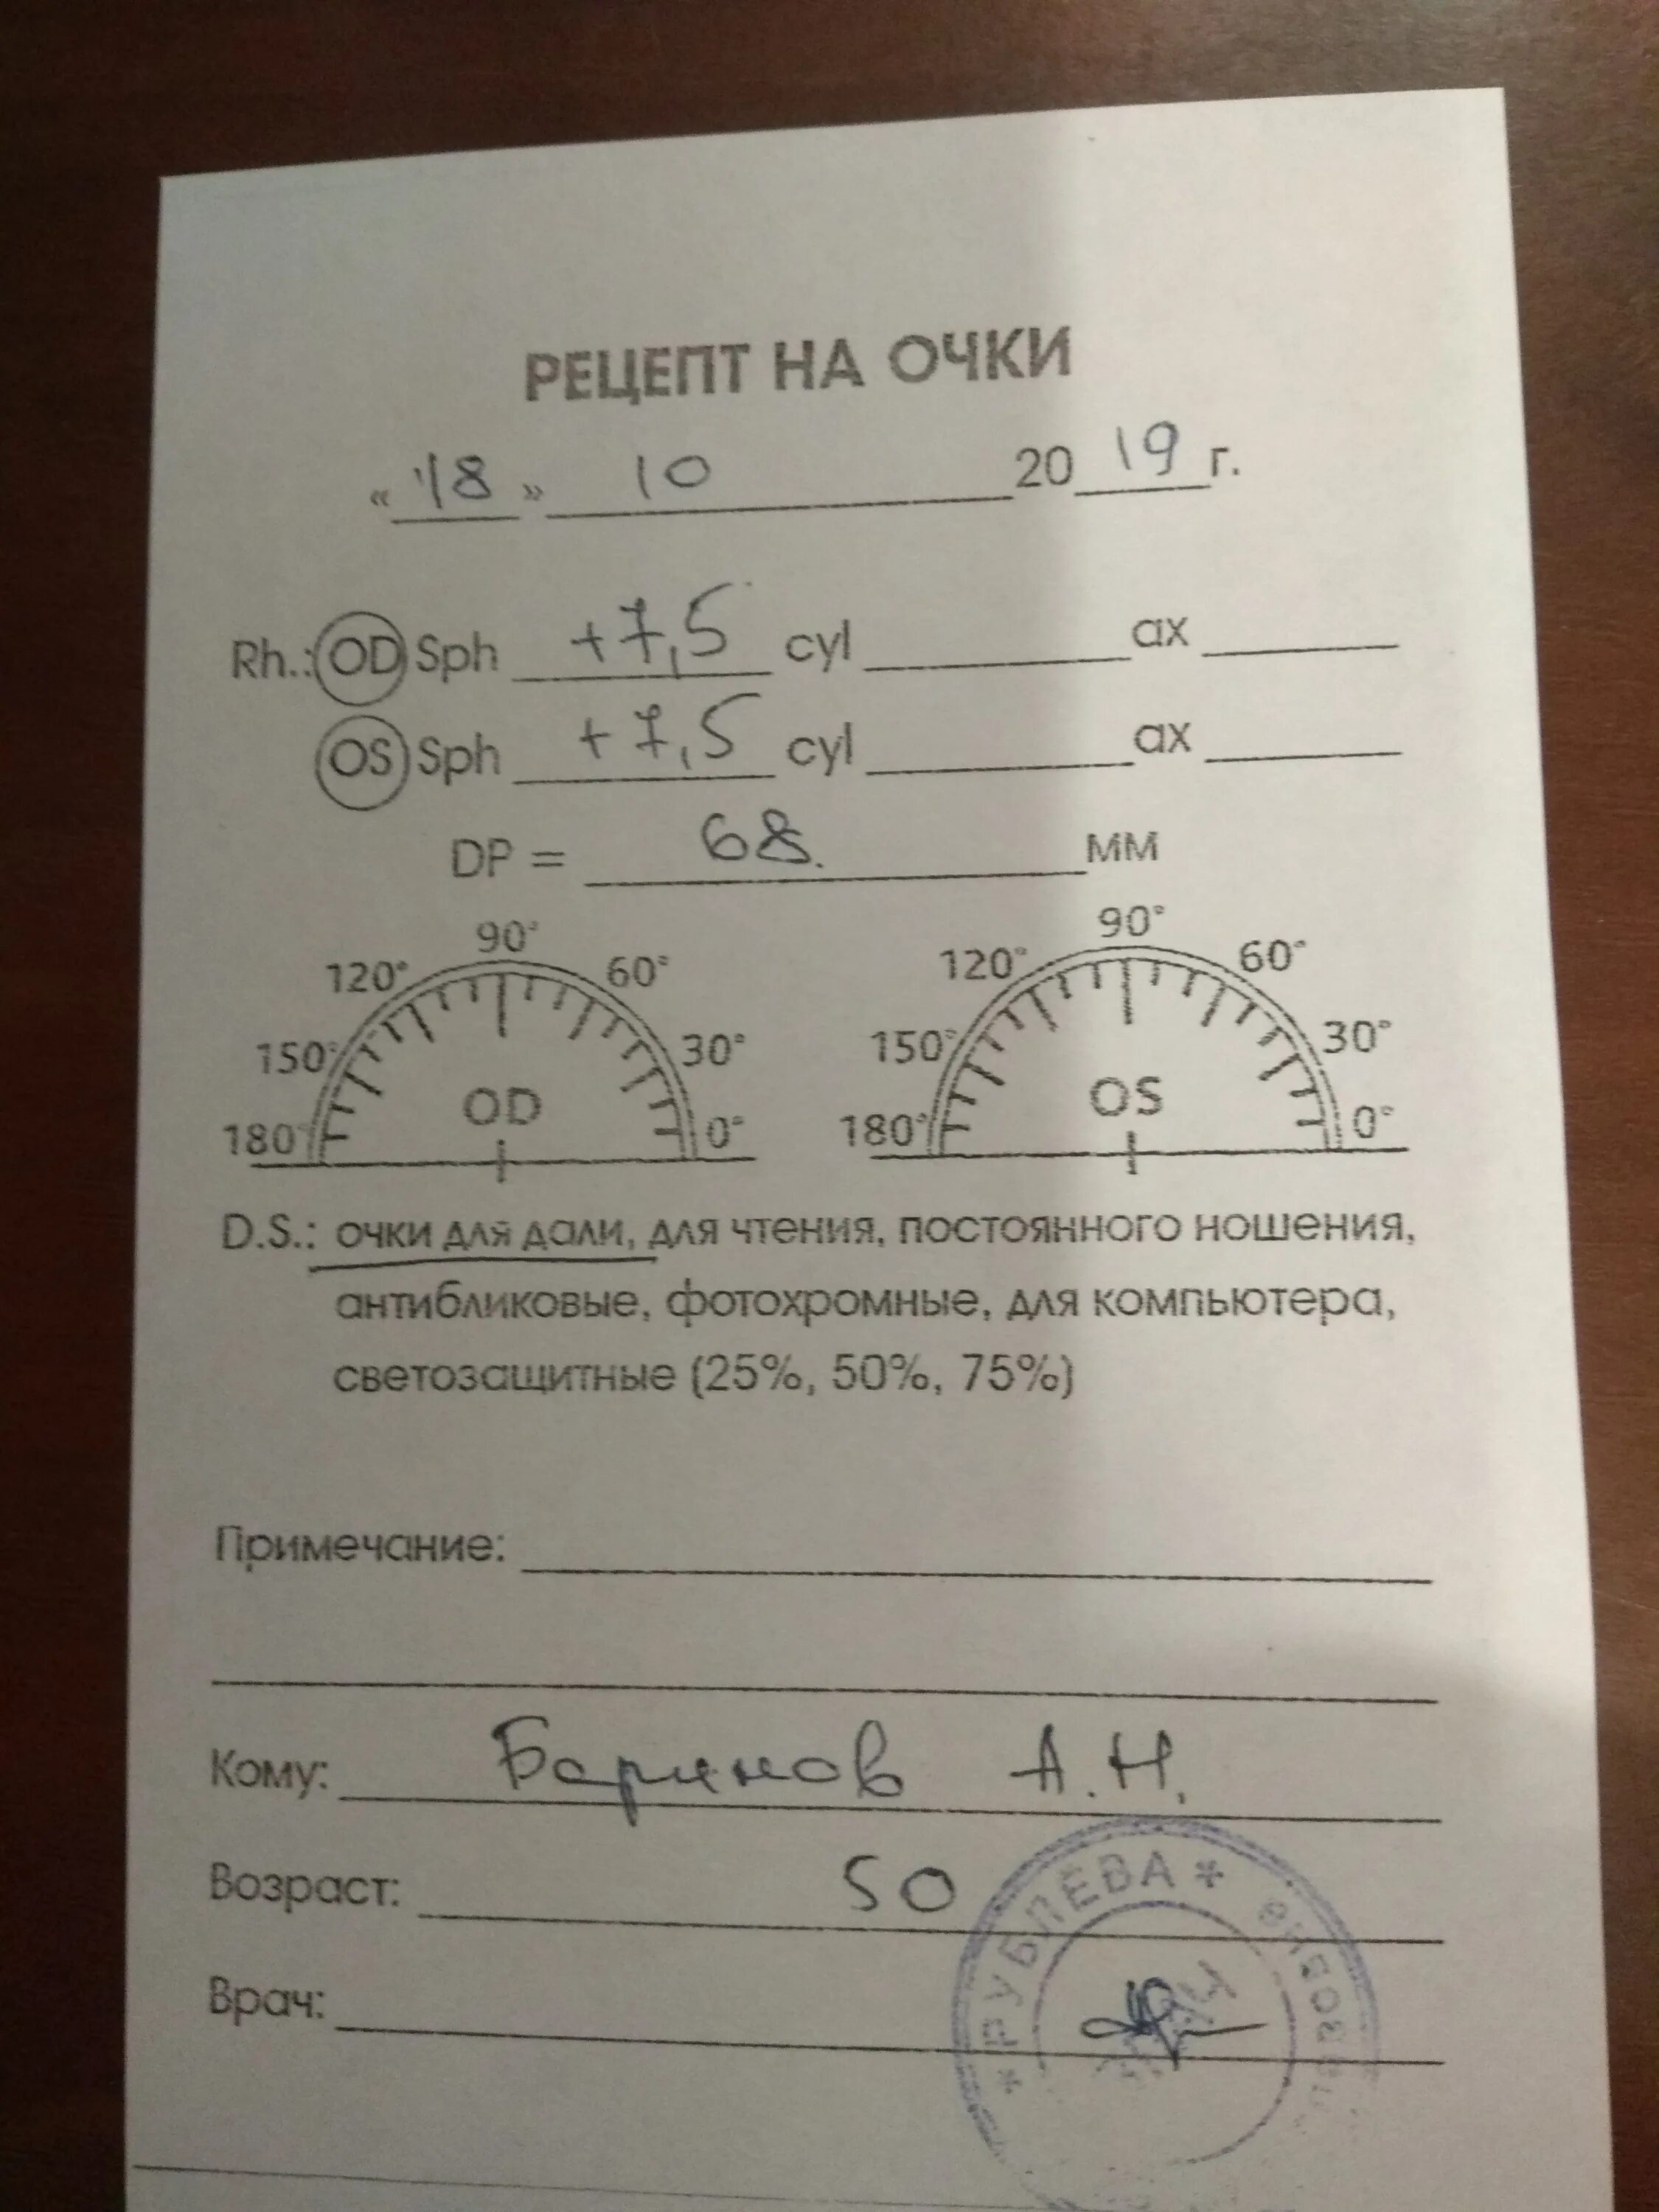 РЕЦЕПТ НА ОЧКИ
« 18 » 10 20 19 г.
Rh.: OD Sph +7,5 cyl ax
OS Sph +7,5 cyl ax
DP = 68. мм
90° 90°
120° 60° 120° 60°
150° 30° 150° 30°
OD OS
180° 0° 180° 0°
D.S.: очки для дали, для чтения, постоянного ношения,
антибликовые, фотохромные, для компьютера,
светозащитные (25%, 50%, 75%)
Примечание:
Кому: Баринов А.Н.
Возраст: 50
Врач:
* РУБЛЕВА *